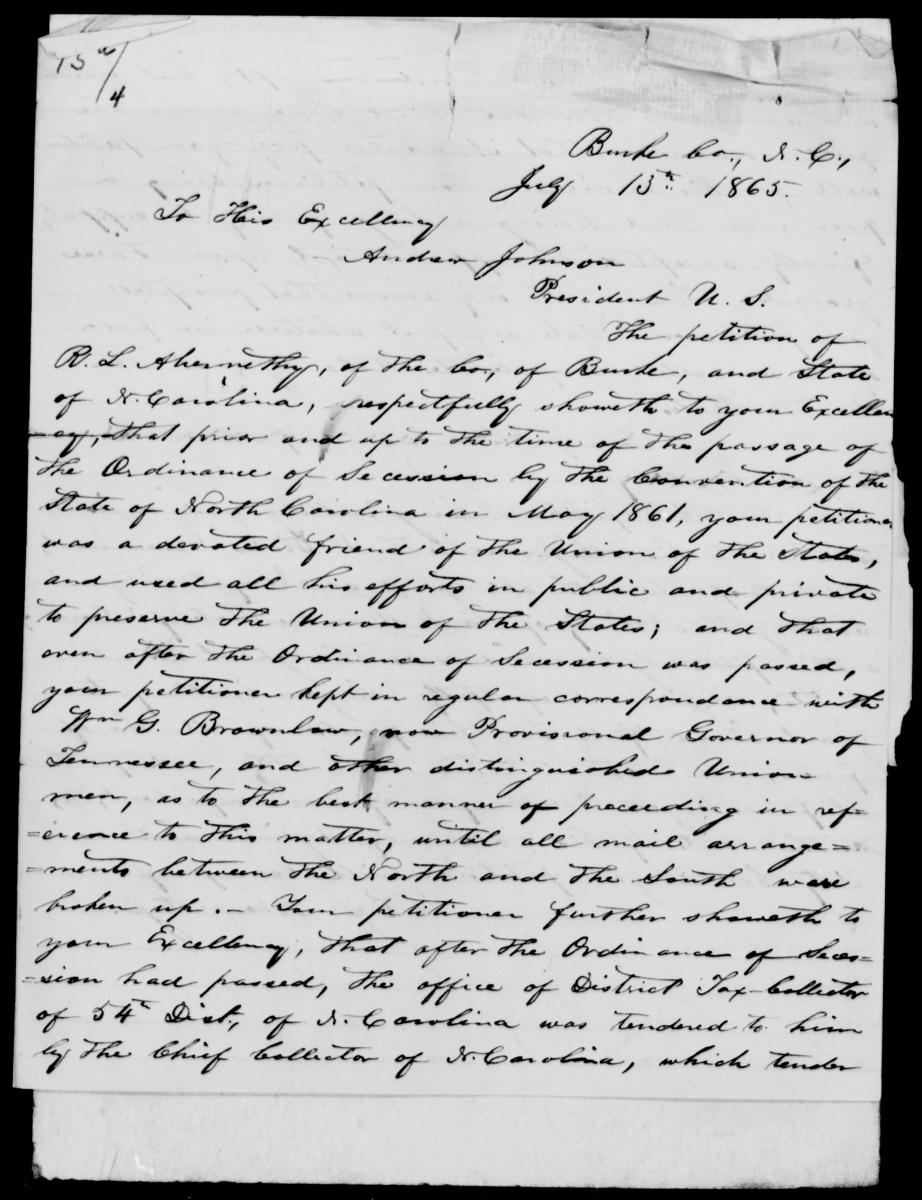 15th/4
Burke Co., N.C.,
July 15th. 1865.
To His Excellency
Andrew Johnson
President U. S.
The petition of
R. L. Abernethy, of the Co., of Burke, and State
of N. Carolina, respectfully showeth to your Excellen
=cy, that prior and up to the time of the passage of
the Ordinance of Secession by the Convention of the
State of North Carolina in May 1861, your petitioner
was a devoted friend of the Union of the States,
and used all his efforts in public and private
to preserve the Union of the States; and that
even after the Ordinance of Secession was passed,
your petitioner kept in regular correspondence with
Wm G. Brownlow, now Provisional Governor of
Tennessee, and other distinguished Union
men, as to the best manner of preceeding in ref=
=erence to this matter, until all mail arrange=
=ments between the North and the South were
broken up. — Your petitioner further showeth to
your Excellency, that after the Ordinance of Seces=
=sion had passed, the office of District Tax-Collector
of 54th Dist., of N. Carolina was tendered to him
by the Chief Collector of N. Carolina, which tender